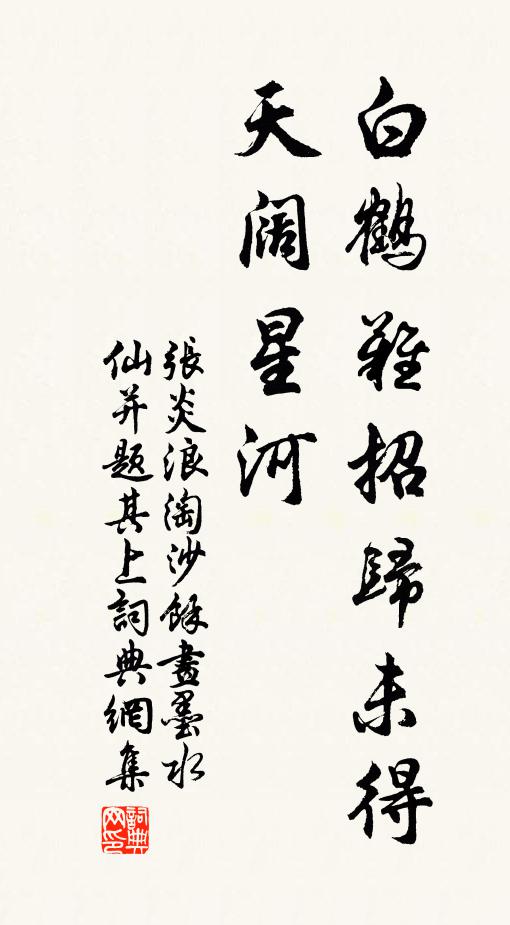 白鶴難招歸未得
天阔星河
張炎浪淘沙餘畫墨水
仙并題其上詞典網集
詞典网印